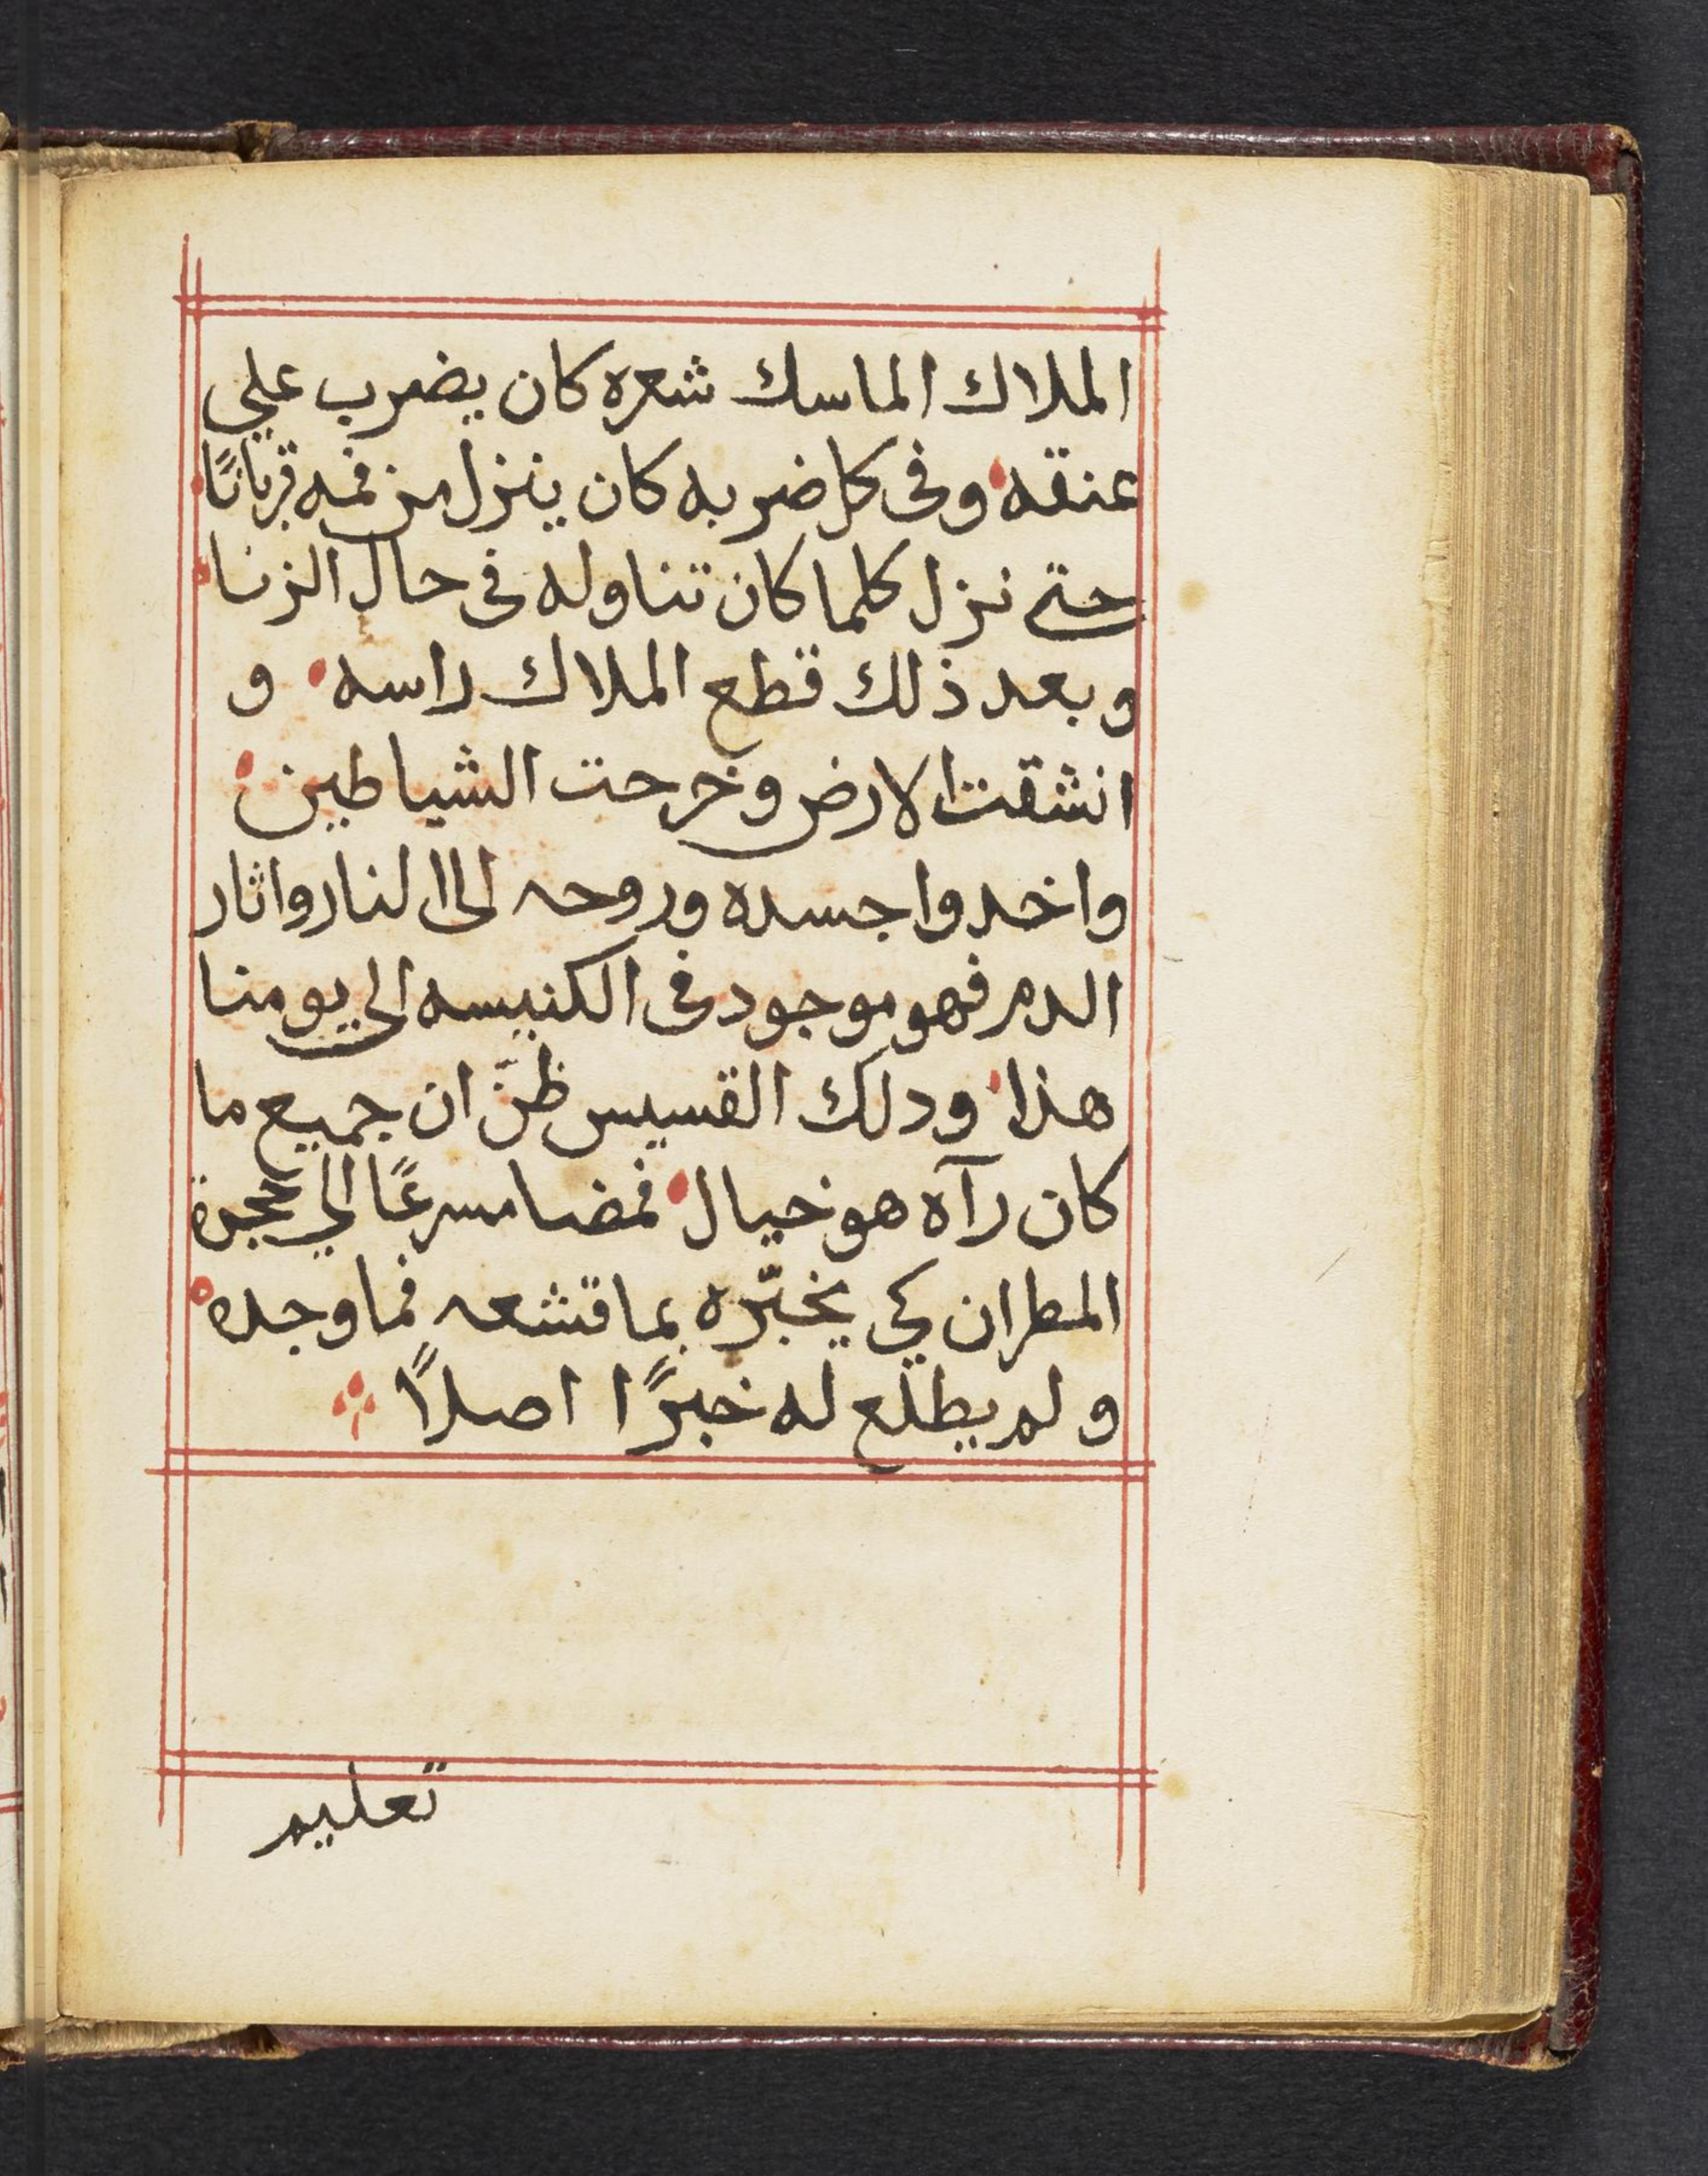 الملاك الماسك شعره كان يضرب علي
عنقه وفى كل ضربه كان ينزل من فمه قربانًا
حتى نزل كلما كان تناوله فى حال الزنا
وبعد ذلك قطع الملاك راسه و
انشقت الارض وخرجت الشياطين
واخدوا جسده وروحه الى النار واثار
الدم فهو موجود فى الكنيسه الي يومنا
هذا ودلك القسيس ظنَّ ان جميع ما
كان رآه هو خيال فمضا مسرعًا الي حجرة
المطران كي يخبّره بما قشعه فما وجده
ولم يطلع له خبرًا اصلاً
تعليم